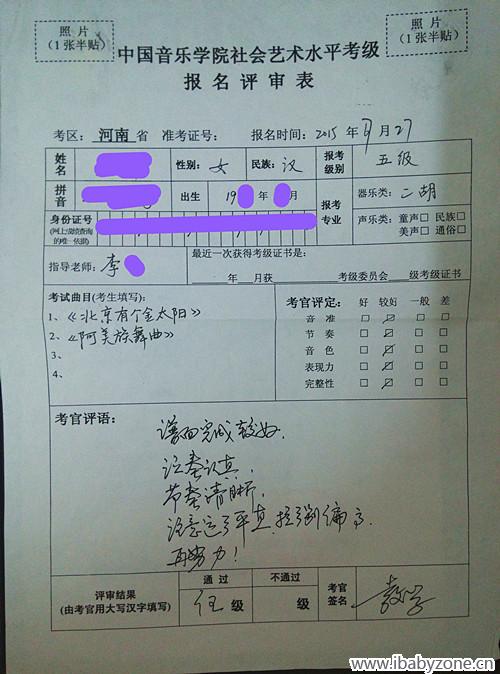 照片
(1张半贴)
照片
(1张半贴)
中国音乐学院社会艺术水平考级
报名评审表
考区: 河南 省 准考证号: 报名时间: 2015 年 9 月 27
姓名 性别: 女 民族: 汉 报考级别 五级
拼音 出生 19 年 月 报考专业 器乐类: 二胡
身份证号
(网上成绩查询的唯一依据)
声乐类: 童声□ 民族□
美声□ 通俗□
指导老师: 李
最近一次获得考级证书是:
年 月获 考级委员会 级考级证书
考试曲目(考生填写):
1、《北京有个金太阳》
2、《阿美族舞曲》
3、
4、
考官评定: 好 较好 一般 差
音准 □ ☑ □ □
节奏 □ ☑ □ □
音色 □ ☑ □ □
表现力 □ ☑ □ □
完整性 □ ☑ □ □
考官评语:
谱面完成较好.
演奏认真,
节奏清晰,
注意运弓平直,
再努力!
评审结果
(由考官用大写汉字填写)
通过 不通过
伍 级 级
考官签名
www.ibabyzone.cn